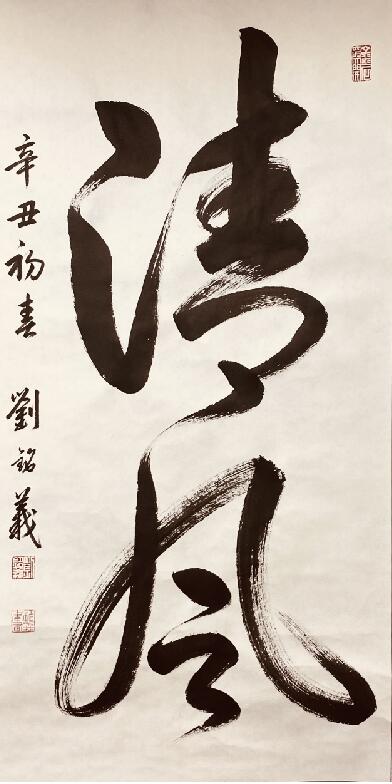 清风
辛丑初春 劉銘義